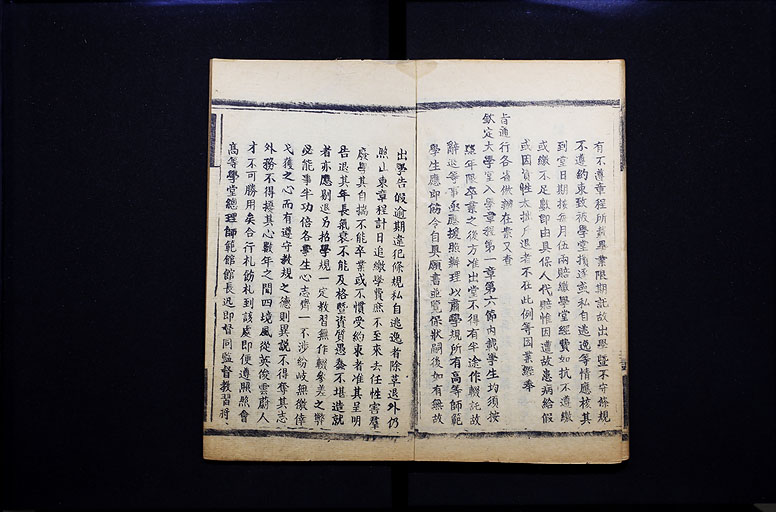 有不遵章程所載畢業限期託故出學暨不守條規
不遵約束致被學堂擯逐或私自逃逸等情應核其
到堂日期按每月伍兩賠繳學堂經費如抗不遵繳
或繳不足數即由具保人代賠惟因遭故患病給假
或因質性太拙斥退者不在此例等因業經奉
旨通行各省倣辦在案又查
欽定大學堂入學章程第一章第六節內載學生均須按
照年限卒業之後方准出堂不得有半途作輟託故
辭退等事亟應援照辦理以肅學規所有高等師範
學生應即飭令自具願書並覓保狀嗣後如有無故
出學告假逾期違犯條規私自逃逸者除革退外仍
照山東章程計日追繳學費庶不至來去任性害羣
廢學其自揣不能卒業或不慣受約束者准其呈明
告退其年長氣衰不能及格暨資質愚蠢不堪造就
者亦應剔退另招學規一定教習無作輟參差之弊
必能事半功倍各學生心志齊一不涉紛岐無徼倖
弋獲之心而有遵守教規之德則異說不得奪其志
外務不得擾其心數年之間四境風從英俊雲蔚人
才不可勝用矣合行札飭札到該處即便遵照照會
高等學堂總理師範館館長迅即督同監督教習將